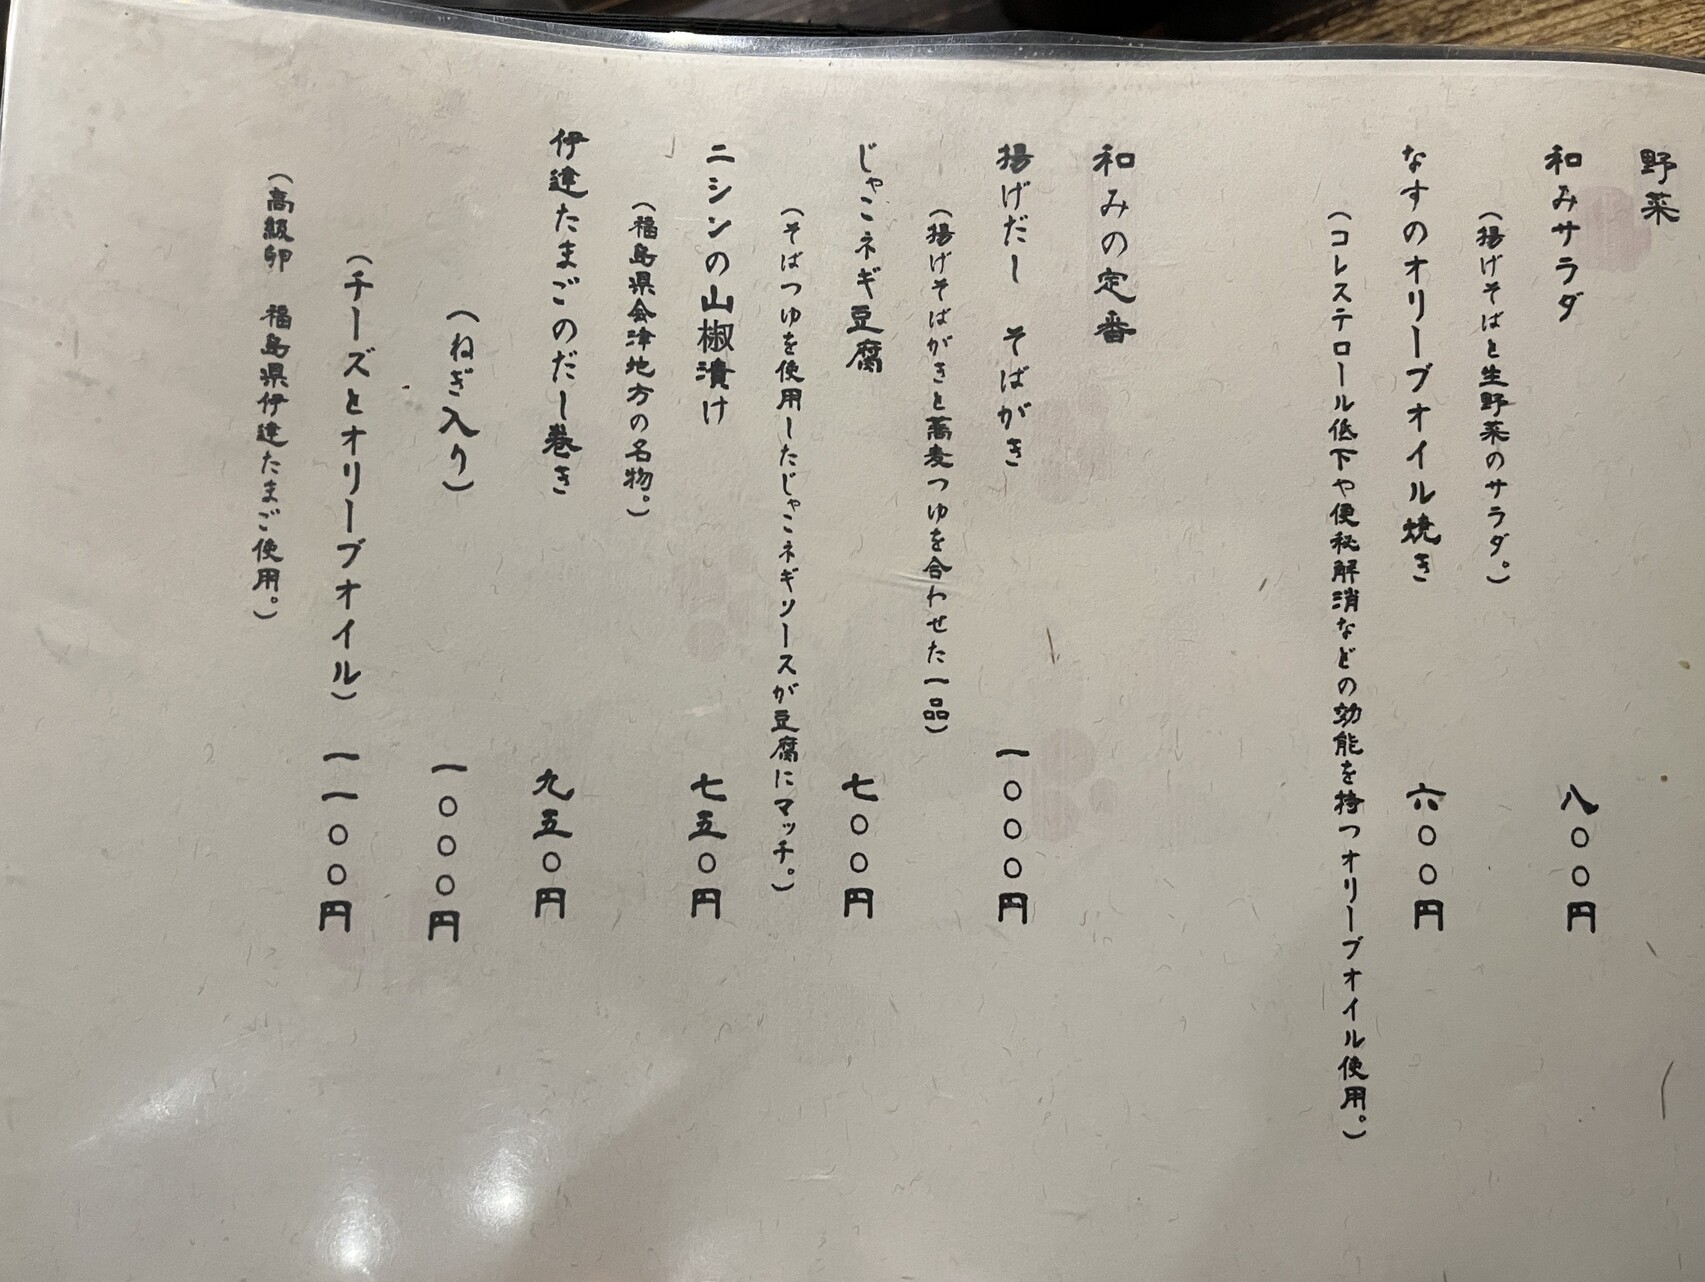 野菜
和みサラダ 八〇〇円
（揚げそばと生野菜のサラダ。）
なすのオリーブオイル焼き 六〇〇円
（コレステロール低下や便秘解消などの効能を持つオリーブオイル使用。）
和みの定番
揚げだし そばがき 一〇〇〇円
（揚げそばがきと蕎麦つゆを合わせた一品）
じゃこネギ豆腐 七〇〇円
（そばつゆを使用したじゃこネギソースが豆腐にマッチ。）
ニシンの山椒漬け 七五〇円
（福島県会津地方の名物。）
伊達たまごのだし巻き 九五〇円
（ねぎ入り） 一〇〇〇円
（チーズとオリーブオイル） 一一〇〇円
（高級卵 福島県伊達たまご使用。）